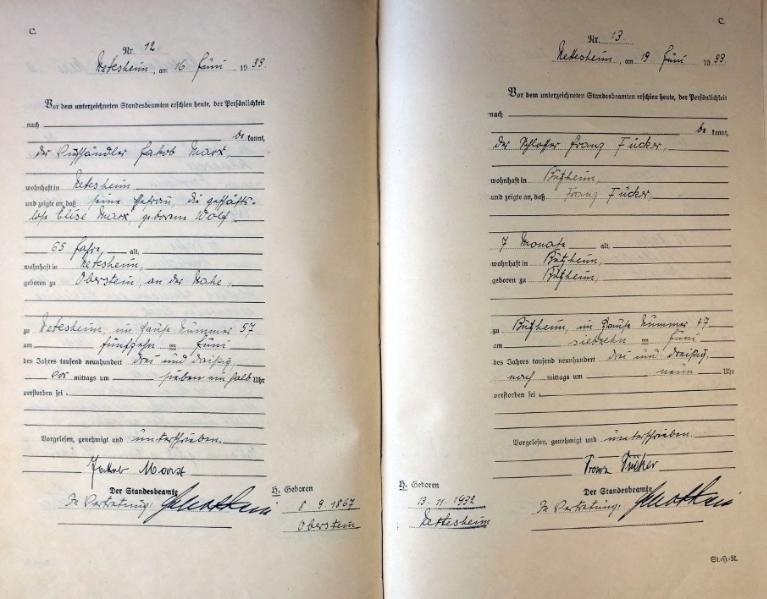 C.
Nr. 12
Nettesheim, am 16 Juni 1933.
Vor dem unterzeichneten Standesbeamten erschien heute, der Persönlichkeit
nach
be kannt,
der Viehhändler Jakob Marx,
wohnhaft in Nettesheim,
und zeigte an, daß seine Ehefrau, die geschäfts-
lose Elise Marx geborene Wolf,
65 Jahre alt,
wohnhaft in Nettesheim,
geboren zu Oberstein, an der Nahe,
zu Nettesheim, im Hause Nummer 57
am fünfzehn ten Juni
des Jahres tausend neunhundert drei und dreißig,
vor mittags um sieben ein halb Uhr
verstorben sei.
Vorgelesen, genehmigt und unterschrieben.
Jakob Marx
Der Standesbeamte
In Vertretung:
H. Geboren
8. 9. 1867
Oberstein
C.
Nr. 13.
Nettesheim, am 19 Juni 1933
Vor dem unterzeichneten Standesbeamten erschien heute, der Persönlichkeit
nach
be kannt,
der Schlosser Franz Fücker,
wohnhaft in Bützheim,
und zeigte an, daß Franz Fücker,
7 Monate alt,
wohnhaft in Bützheim,
geboren zu Bützheim,
zu Bützheim, im Hause Nummer 47
am siebzehn ten Juni
des Jahres tausend neunhundert drei und dreißig,
nach mittags um neun Uhr
verstorben sei.
Vorgelesen, genehmigt und unterschrieben.
Franz Fücker
Der Standesbeamte
In Vertretung:
H. Geboren
13. 11. 1932
Nettesheim
St.-H.-R.